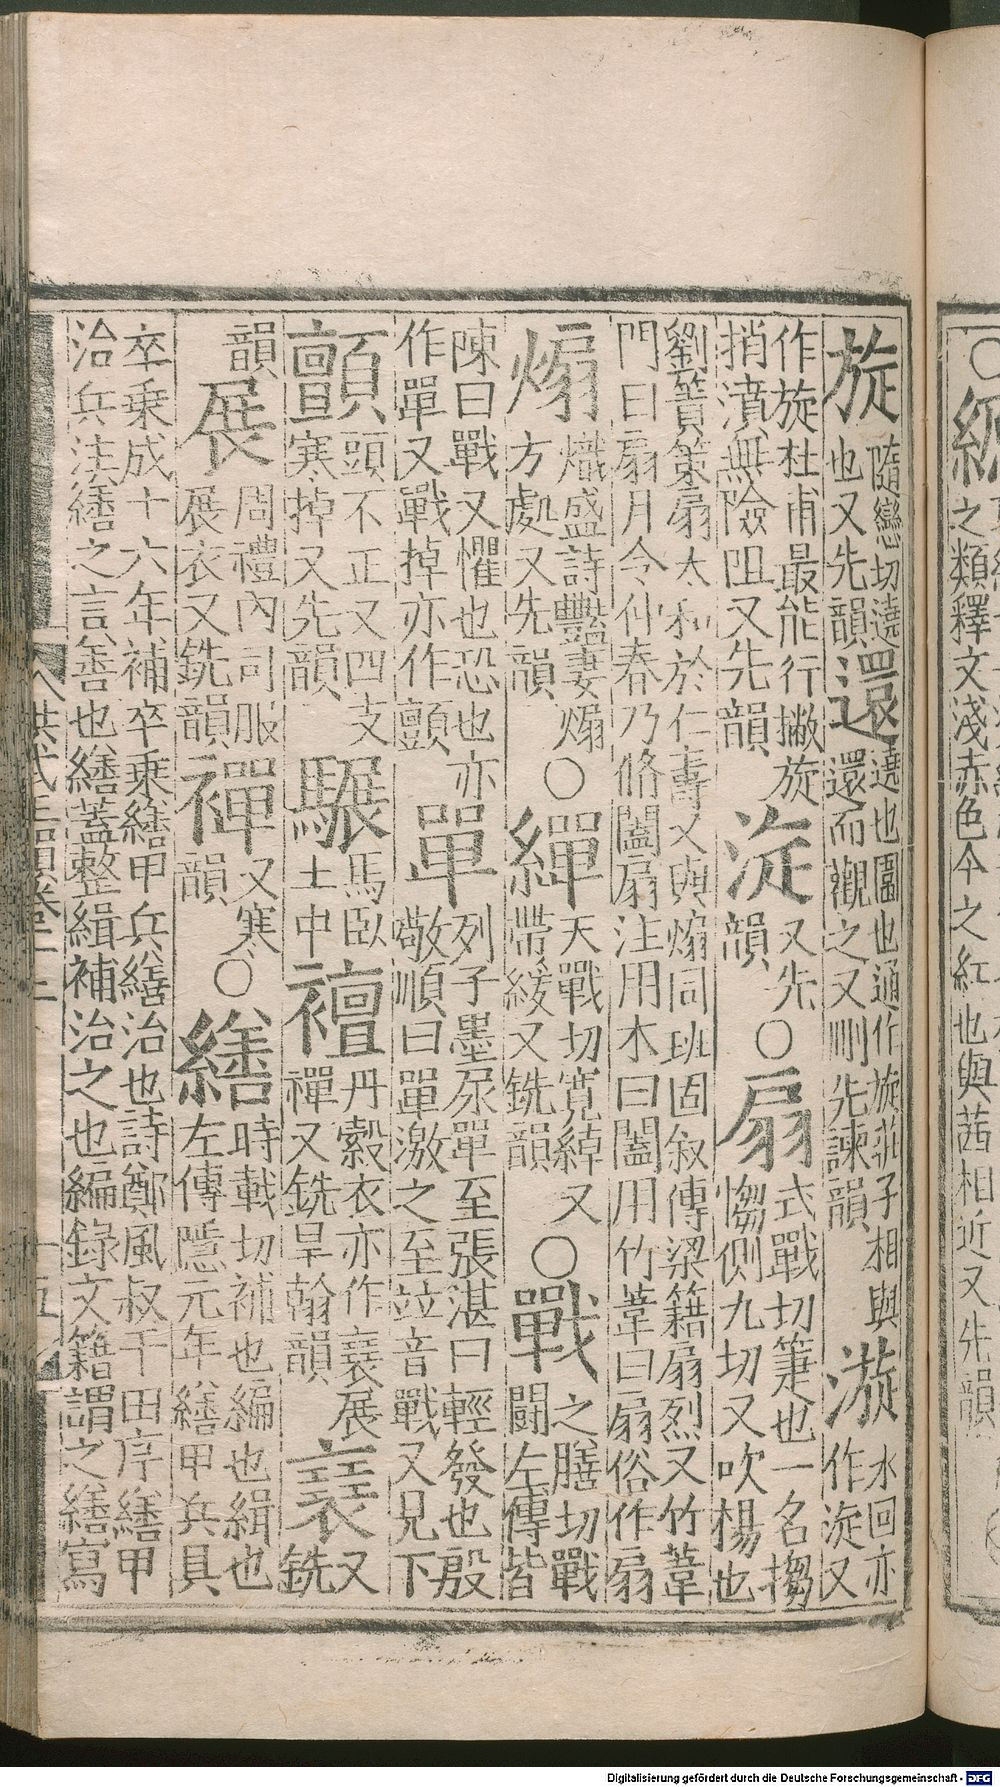 旋隨戀切遶也又先韻還遶也圍也通作旋莊子相與還而觀之又刪先諫韻漩水回亦作淀又
作旋杜甫最能行撇旋捎濆無險阻又先韻淀又先韻○扇式戰切箑也一名搊㑳側九切又吹楊也
劉蕡策扇太和於仁壽又與煽同班固叙傳梁籍扇烈又竹葦門曰扇月令仲春乃脩闔扇注用木曰闔用竹葦曰扇俗作扇
煽熾盛詩豔妻煽方處又先韻○繟天戰切寬綽又帶緩又銑韻○戰之膳切戰鬬左傳皆
陳曰戰又懼也恐也亦作單又戰掉亦作顫單列子墨尿單至張湛曰輕發也殷敬順曰單激之至竝音戰又見下
顫頭不正又四支寒掉又先韻驏馬臥土中襢丹縠衣亦作襄展禪又銑旱翰韻襄又銑
韻展周禮內司服展衣又銑韻禪又寒韻○繕時戰切補也編也緝也左傳隱元年繕甲兵具
卒乘成十六年補卒乘繕甲兵繕治也詩鄭風叔于田序繕甲治兵注繕之言善也繕蓋整緝補治之也編錄文籍謂之繕寫
洪武正韻卷十二
十五
之類釋文淺赤色今之紅也與茜相近又先韻
Digitalisierung gefördert durch die Deutsche Forschungsgemeinschaft - DFG